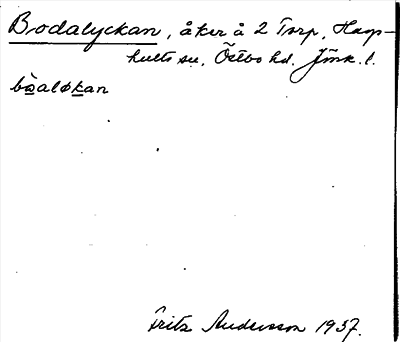 Bodalyckan, åker å 2 Torp, Haap-
hults sn, Östbo hd. Jönk. l.
bàaløkan
Fritz Andersson 1937.